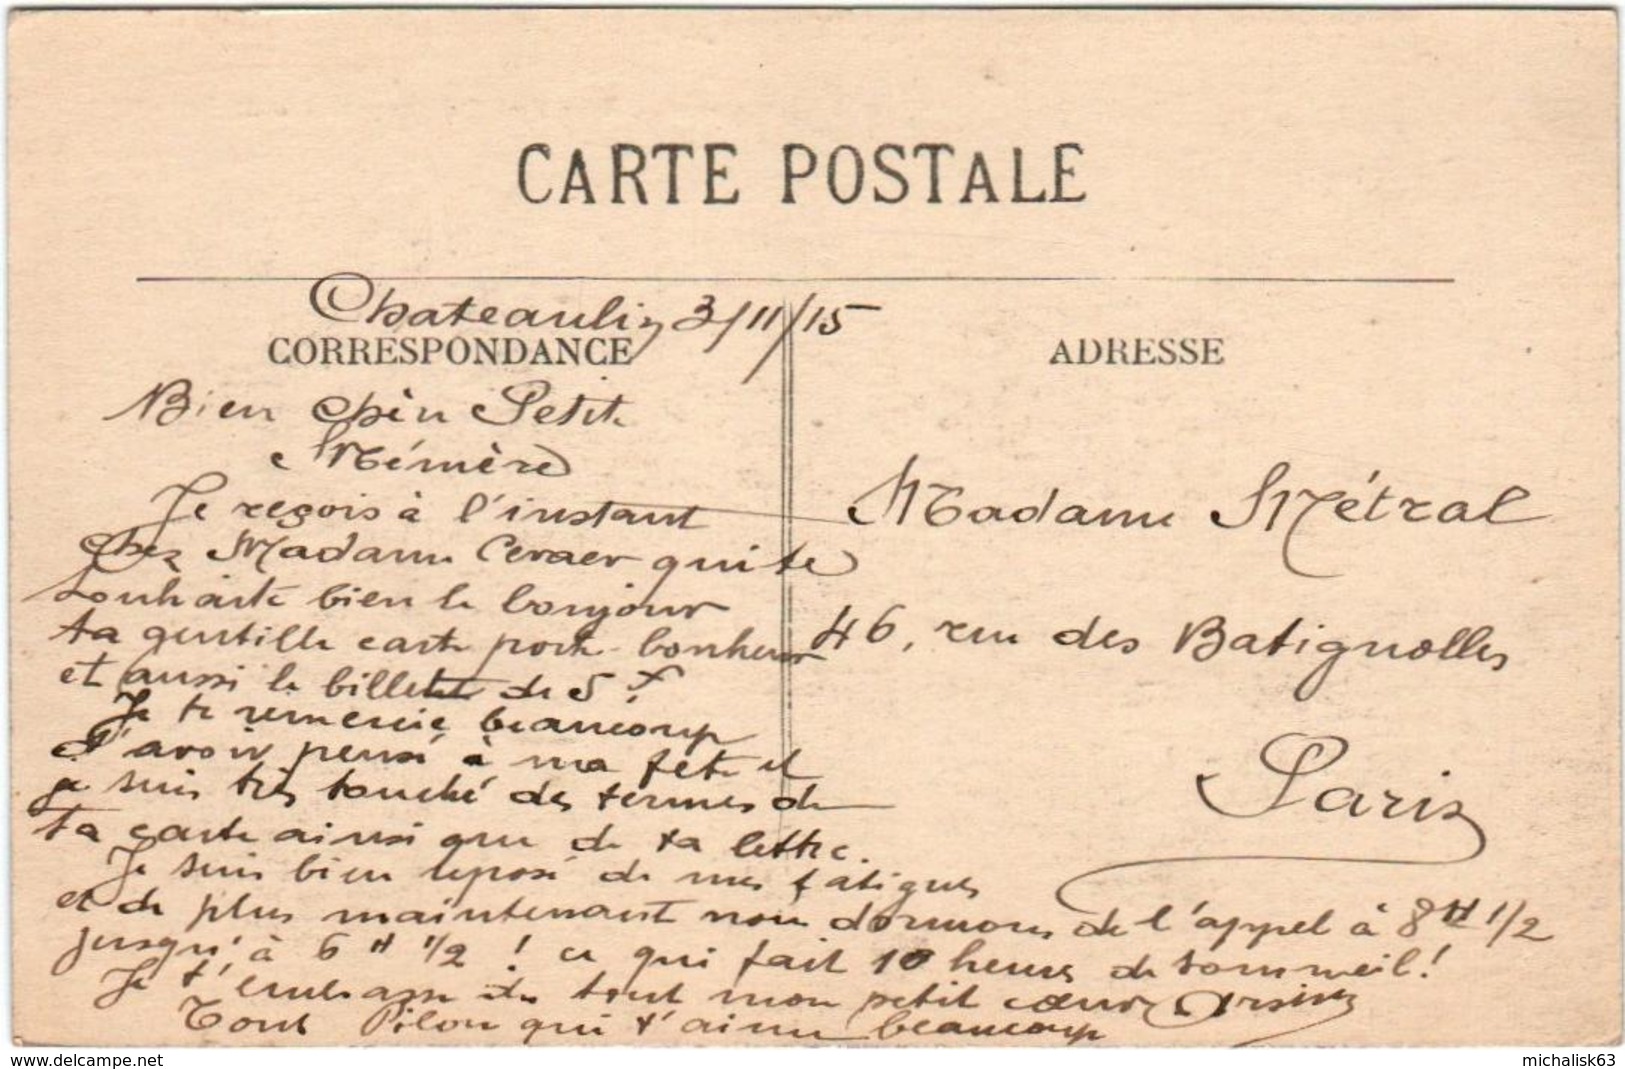 CARTE POSTALE
Chateaulin 3/11/15
CORRESPONDANCE
Bien chère Petite
Mémère
Je reçois à l'instant
chez Madame Cevaer qui te
souhaite bien le bonjour
ta gentille carte porte-bonheur
et aussi le billet de 5f.
Je te remercie beaucoup
d'avoir pensé à ma fête et
je suis très touché des termes de
ta carte ainsi que de ta lettre.
Je suis bien reposé de mes fatigues
et de plus maintenant nous dormons de l'appel à 8H 1/2
jusqu'à 6H 1/2 ! ce qui fait 10 heures de sommeil!
Je t'embrasse de tout mon petit cœur
Ton Pilou qui t'aime beaucoup
ADRESSE
Madame Métral
46, rue des Batignolles
Paris
www.delcampe.net
michalisk63